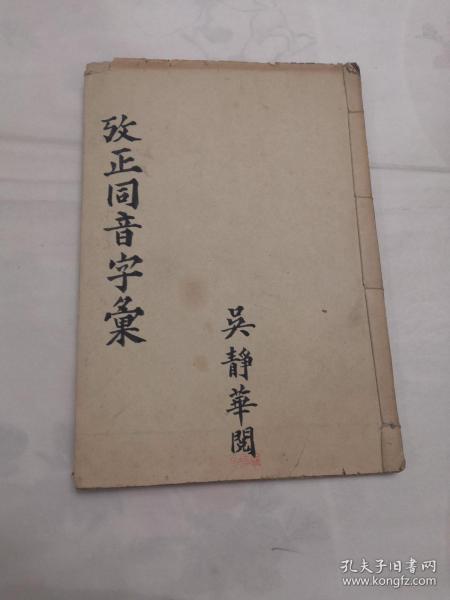 攷正同音字彙
吳靜華閱
孔夫子旧书网
www.kongfz.com